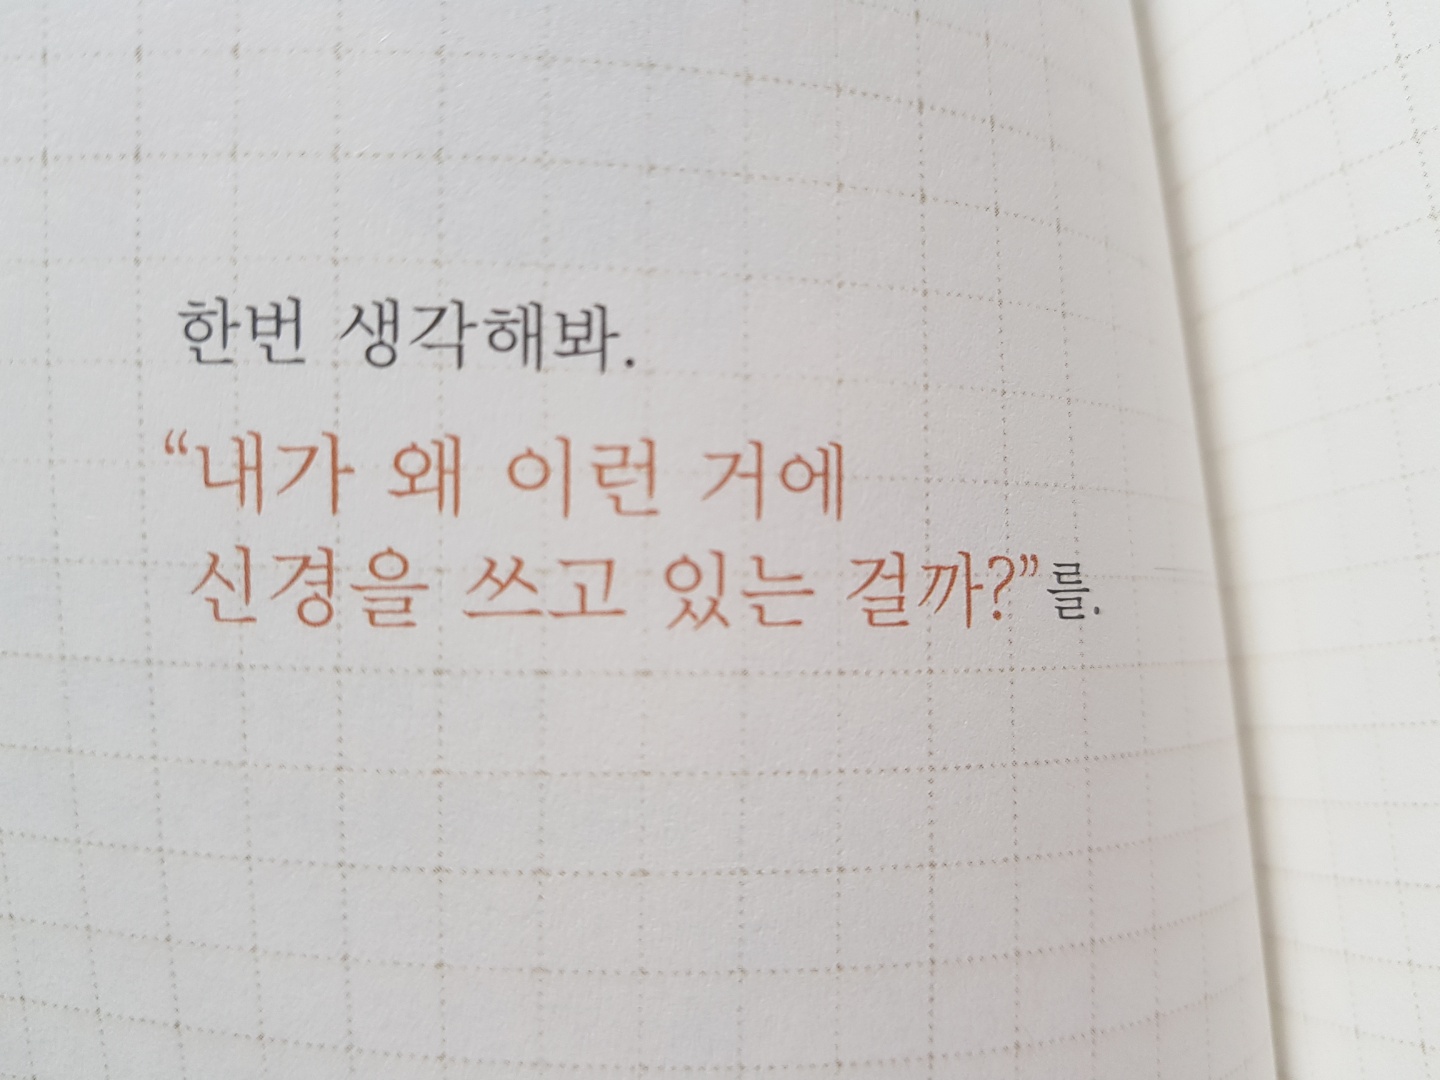 한번 생각해봐.
“내가 왜 이런 거에
신경을 쓰고 있는 걸까?”를.